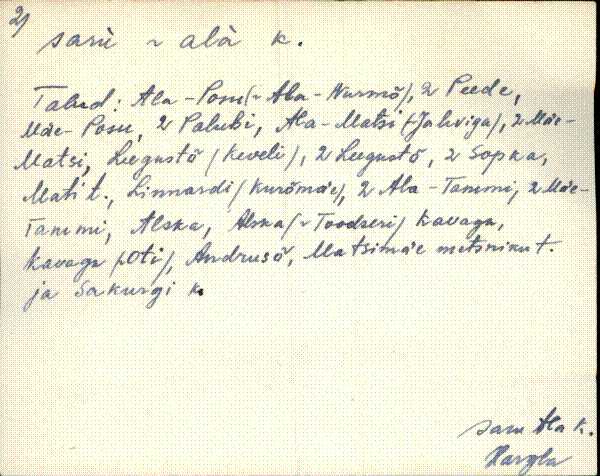 2)
saru ~ alà k.
Talud: Ala-Posu (~ Ala-Nurmõ), 2 Peede,
Mäe-Posu, 2 Palubi, Ala-Matsi (~Jahviga), 2 Mäe-
Matsi, Leegustõ (Keveli), 2 Leegustõ, 2 Sopka,
Mati t., Linnardi (Kurõmäe), 2 Ala-Tammi, 2 Mäe-
Tammi, Alska, Alska (~Toodseri) Kavaga,
Kavaga (Oti), Andrusõ, Matsimäe metsniku t.
ja Sakurgi k.
saru Ala k.
Hargla